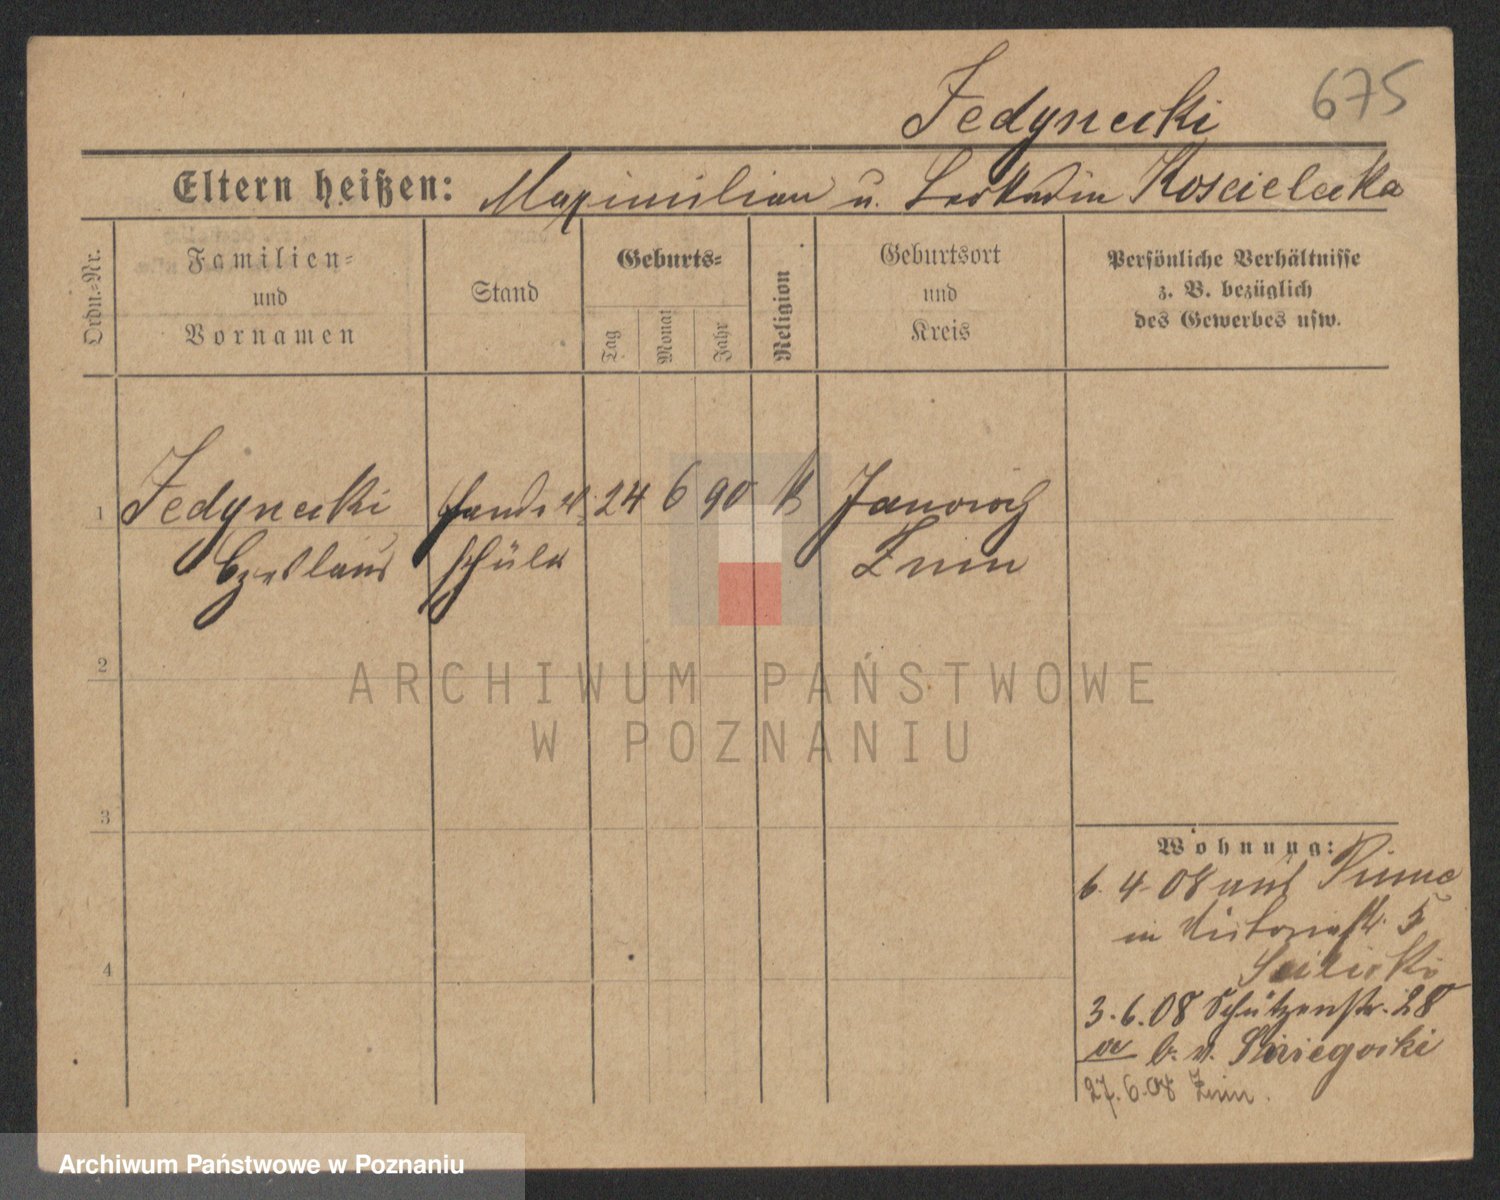 Jedynecki 675
Eltern heißen: Maximilian u. Leokadia Koscielecka
Ordn.-Nr.
Familien- und Vornamen
Stand
Geburts-
Tag
Monat
Jahr
Religion
Geburtsort und Kreis
Persönliche Verhältnisse
z. B. bezüglich
des Gewerbes usw.
1 Jedynecki 24 6 90 k
Czeslaus schüler Znin
2
3
4
Wohnung:
6. 4. 08 aus Pinne
in Victoriastr. 5
3. 6. 08 Schützenstr. 28
b. v.
27. 6. 08 Znin.
ARCHIWUM PAŃSTWOWE
W POZNANIU
Archiwum Państwowe w Poznaniu